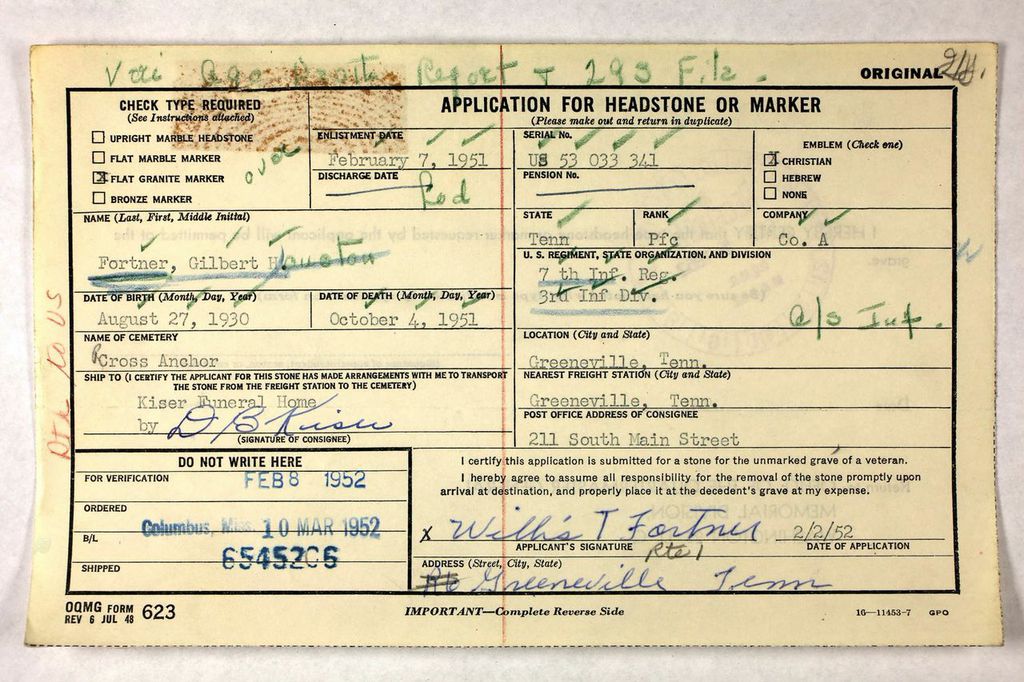 Report + 293 File.
ORIGINAL
CHECK TYPE REQUIRED
(See Instructions attached)
UPRIGHT MARBLE HEADSTONE
FLAT MARBLE MARKER
FLAT GRANITE MARKER
BRONZE MARKER
over
APPLICATION FOR HEADSTONE OR MARKER
(Please make out and return in duplicate)
ENLISTMENT DATE
February 7, 1951
DISCHARGE DATE
SERIAL No.
US 53 033 341
PENSION No.
EMBLEM (Check one)
CHRISTIAN
HEBREW
NONE
NAME (Last, First, Middle Initial)
Fortner, Gilbert Houston
STATE
Tenn
RANK
Pfc
COMPANY
Co. A
U. S. REGIMENT, STATE ORGANIZATION, AND DIVISION
7 th Inf. Reg.
3rd Inf Div.
a/s Inf.
DATE OF BIRTH (Month, Day, Year)
August 27, 1930
DATE OF DEATH (Month, Day, Year)
October 4, 1951
NAME OF CEMETERY
Cross Anchor
LOCATION (City and State)
Greeneville, Tenn.
SHIP TO (I CERTIFY THE APPLICANT FOR THIS STONE HAS MADE ARRANGEMENTS WITH ME TO TRANSPORT
THE STONE FROM THE FREIGHT STATION TO THE CEMETERY)
Kiser Funeral Home
by D B Kiser
(SIGNATURE OF CONSIGNEE)
NEAREST FREIGHT STATION (City and State)
Greeneville, Tenn.
POST OFFICE ADDRESS OF CONSIGNEE
211 South Main Street
DO NOT WRITE HERE
FOR VERIFICATION
FEB 8 1952
ORDERED
Columbus, Miss. 10 MAR 1952
B/L
6545206
SHIPPED
I certify this application is submitted for a stone for the unmarked grave of a veteran.
I hereby agree to assume all responsibility for the removal of the stone promptly upon
arrival at destination, and properly place it at the decedent's grave at my expense.
x Willis T Fortner 2/2/52
APPLICANT'S SIGNATURE
DATE OF APPLICATION
Rte 1
ADDRESS (Street, City, State)
Greeneville Tenn
OQMG FORM 623
REV 6 JUL 48
IMPORTANT—Complete Reverse Side
16—11453-7 GPO